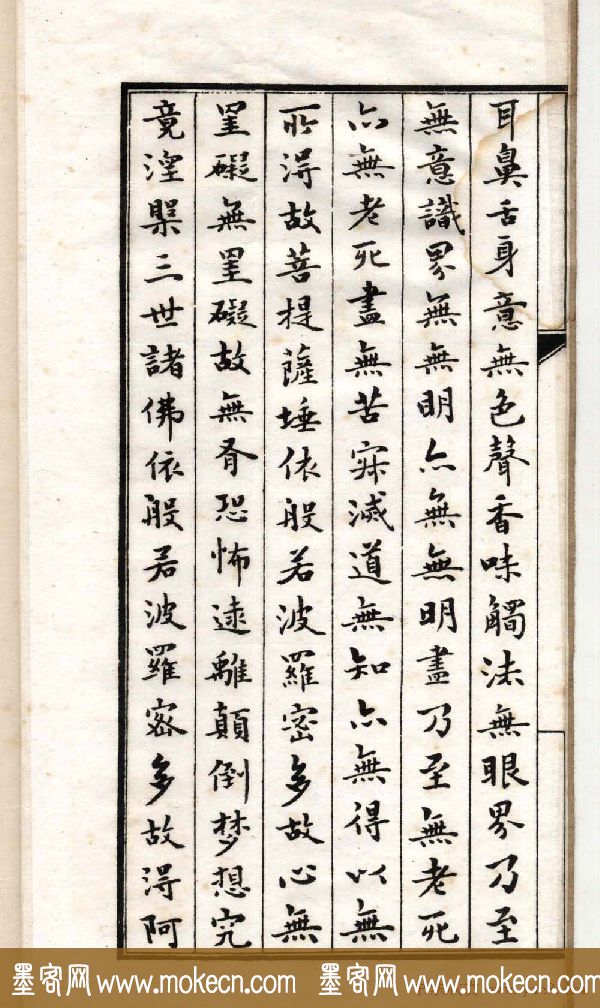 耳鼻舌身意無色聲香味觸法無眼界乃至
無意識界無無明亦無無明盡乃至無老死
亦無老死盡無苦寂滅道無知亦無得以無
所得故菩提薩埵依般若波羅密多故心無
罣礙無罣礙故無有恐怖遠離顛倒梦想究
竟涅槃三世諸佛依般若波羅密多故得阿
墨客网 www.mokecn.com 墨客网 www.mokecn.com